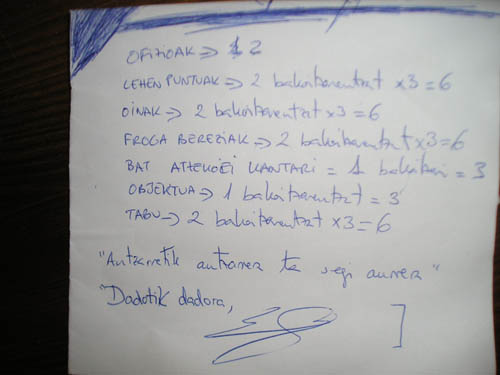 OFIZIOAK → 2
LEHEN PUNTUAK → 2 bakoitzarentzat x3 = 6
OINAK → 2 bakoitzarentzat x3 = 6
FROGA BEREZIAK → 2 bakoitzarentzat x3 = 6
BAT KANTARI = 1 = 3
OBJEKTUA → 1 bakoitzarentzat = 3
TABU → 2 bakoitzarentzat x3 = 6
"Antzarretik antzarrera ta segi aurrera"
"Dadotik dadora,